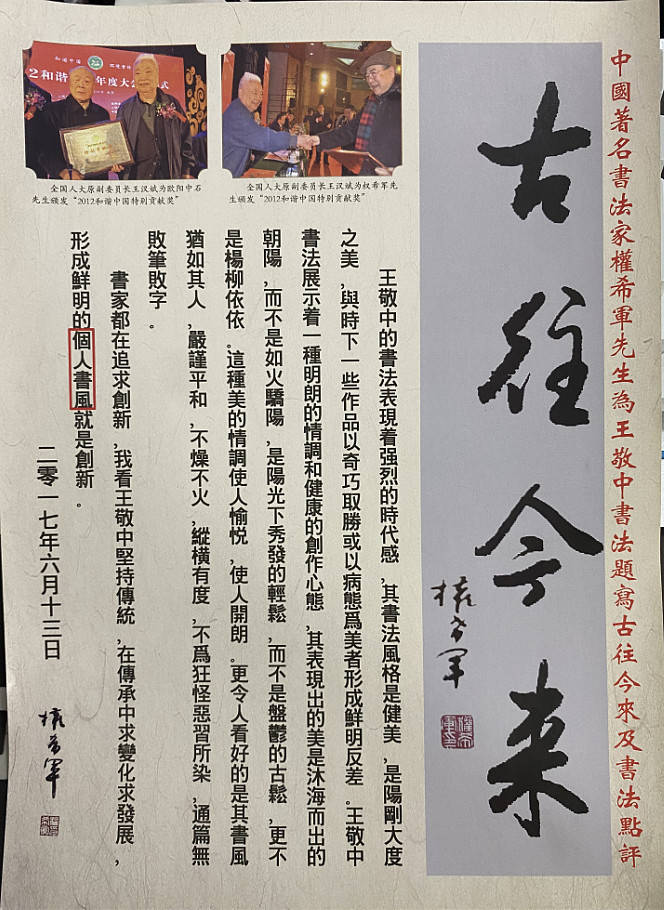 中國著名書法家權希軍先生為王敬中書法題寫古往今來及書法點評
古往今来
權希軍
王敬中的書法表現着强烈的時代感，其書法風格是健美，是陽剛大度
之美，與時下一些作品以奇巧取勝或以病態爲美者形成鮮明反差。王敬中
書法展示着一種明朗的情調和健康的創作心態，其表現出的美是沐海而出的
朝陽，而不是如火驕陽，是陽光下秀發的輕鬆，而不是盤鬱的古鬆，更不
是楊柳依依。這種美的情調使人愉悦，使人開朗。更令人看好的是其書風
猶如其人，嚴謹平和，不燥不火，縱横有度，不爲狂怪惡習所染，通篇無
敗筆敗字。
書家都在追求創新，我看王敬中堅持傳統，在傳承中求變化求發展，
形成鮮明的個人書風就是創新。
二零一七年六月十三日
權希軍
全国人大原副委员长王汉斌为欧阳中石
先生颁发“2012和谐中国特别贡献奖”
全国人大原副委员长王汉斌为权希军先
生颁发“2012和谐中国特别贡献奖”